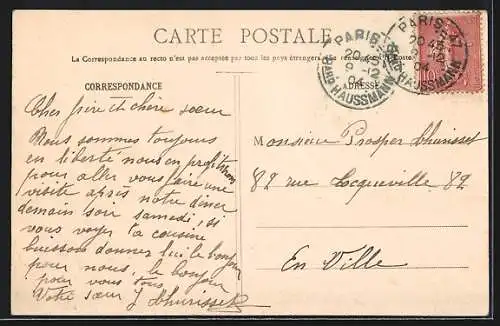 CARTE POSTALE
La Correspondance au recto n'est pas acceptée par tous les pays étrangers
CORRESPONDANCE
ADRESSE
PARIS 47
20 45
9 -12
04
BARD HAUSSMANN
PARIS 47
20 45
9 -12
HAUSSMANN
10
Cher frère et chère sœur
Nous sommes toujours
en liberté nous en profiterons
pour aller vous faire une
visite après notre diner
demain soir samedi, si
vous voyez la cousine
buisson donnez lui le bonjour
pour nous, le bonjour
pour vous tous
Votre sœur J Lhurisset
Monsieur Prosper Lhurisset
88 rue Tocqueville 82
En Ville